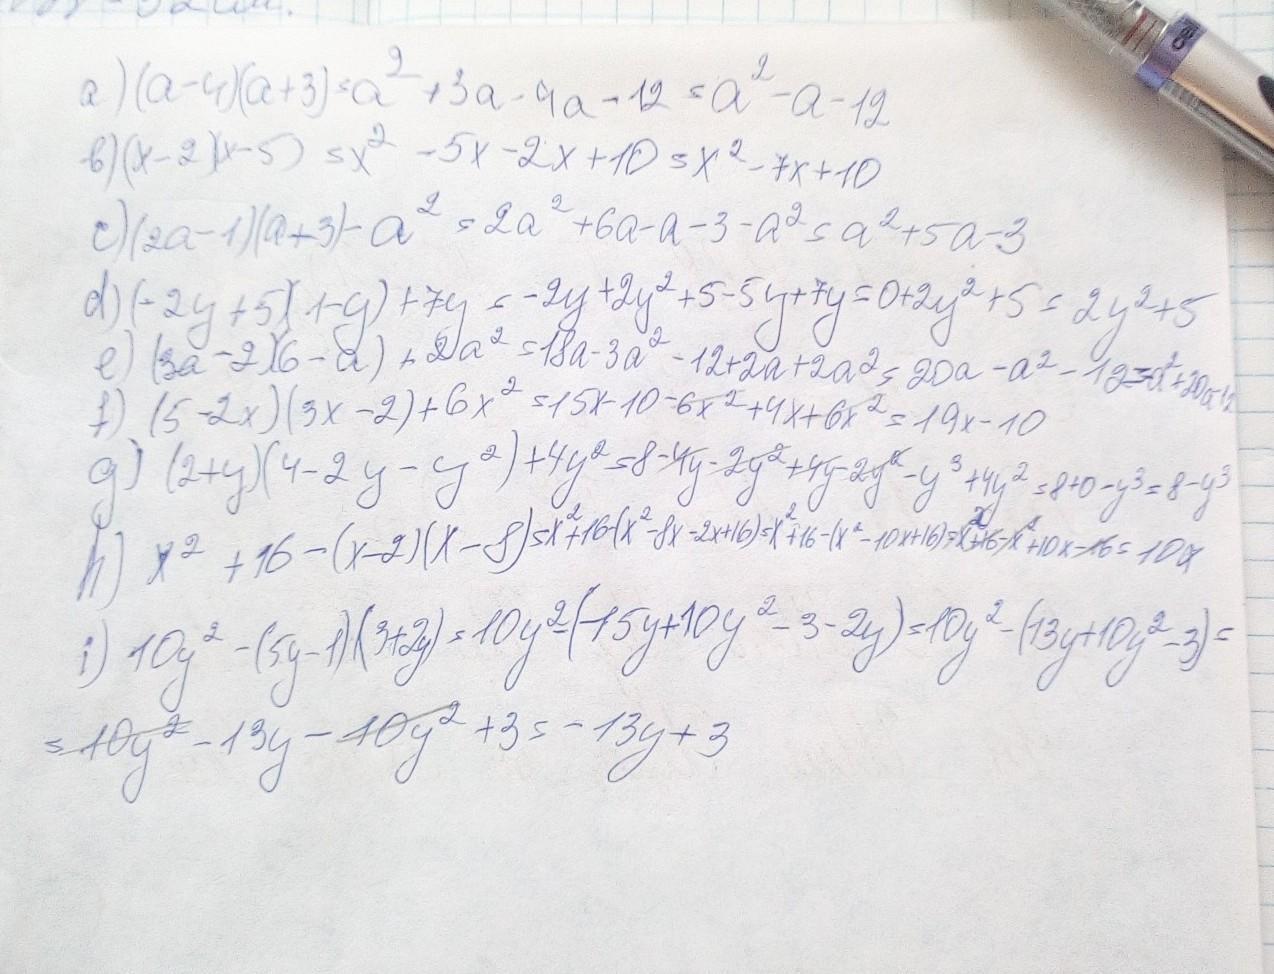 a) (a-4)(a+3)=a²+3a-4a-12=a²-a-12
b) (x-2)(x-5)=x²-5x-2x+10=x²-7x+10
c) (2a-1)(a+3)-a²=2a²+6a-a-3-a²=a²+5a-3
d) (-2y+5)(1-y)+7y=-2y+2y²+5-5y+7y=0+2y²+5=2y²+5
e) (3a-2)(6-a)+2a²=18a-3a²-12+2a+2a²=20a-a²-12=-a²+20a-12
f) (5-2x)(3x-2)+6x²=15x-10-6x²+4x+6x²=19x-10
g) (2+y)(4-2y-y²)+4y²=8-4y-2y²+4y-2y²-y³+4y²=8+0-y³=8-y³
h) x²+16-(x-2)(x-8)=x²+16-(x²-8x-2x+16)=x²+16-(x²-10x+16)=x²+16-x²+10x-16=10x
i) 10y²-(5y-1)(3+2y)=10y²-(15y+10y²-3-2y)=10y²-(13y+10y²-3)=
=10y²-13y-10y²+3=-13y+3